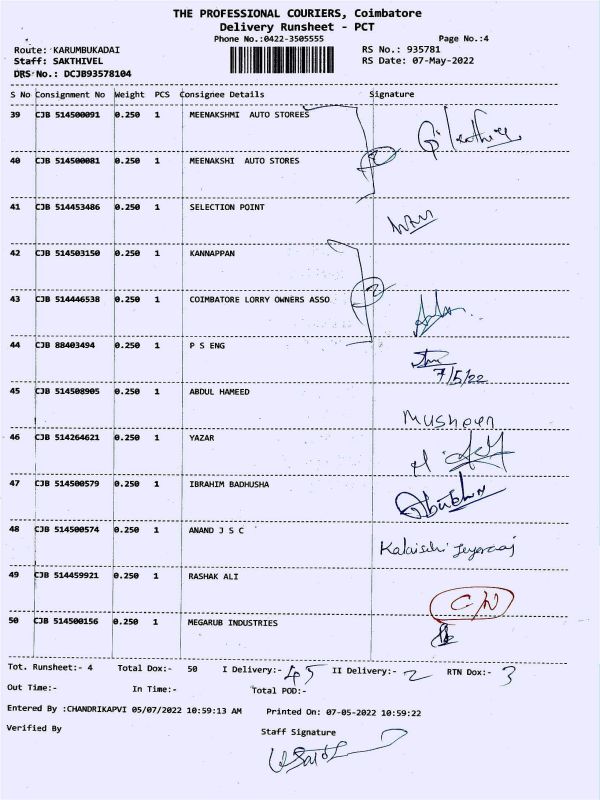 THE PROFESSIONAL COURIERS, Coimbatore
Delivery Runsheet - PCT
Phone No.:0422-3505555 Page No.:4
Route: KARUMBUKADAI RS No.: 935781
Staff: SAKTHIVEL RS Date: 07-May-2022
DRS No.: DCJB93578104
S No Consignment No Weight PCS Consignee Details Signature
39 CJB 514500091 0.250 1 MEENAKSHMI AUTO STOREES
40 CJB 514500081 0.250 1 MEENAKSHI AUTO STORES 2
41 CJB 514453486 0.250 1 SELECTION POINT
42 CJB 514503150 0.250 1 KANNAPPAN
43 CJB 514446538 0.250 1 COIMBATORE LORRY OWNERS ASSO 2
44 CJB 88403494 0.250 1 P S ENG
7/5/22
45 CJB 514508905 0.250 1 ABDUL HAMEED
46 CJB 514264621 0.250 1 YAZAR
47 CJB 514500579 0.250 1 IBRAHIM BADHUSHA
48 CJB 514500574 0.250 1 ANAND J S C
49 CJB 514459921 0.250 1 RASHAK ALI
C/N
50 CJB 514500156 0.250 1 MEGARUB INDUSTRIES
Tot. Runsheet:- 4 Total Dox:- 50 I Delivery:- 45 II Delivery:- 2 RTN Dox:- 3
Out Time:- In Time:- Total POD:-
Entered By :CHANDRIKAPVI 05/07/2022 10:59:13 AM Printed On: 07-05-2022 10:59:22
Verified By Staff Signature